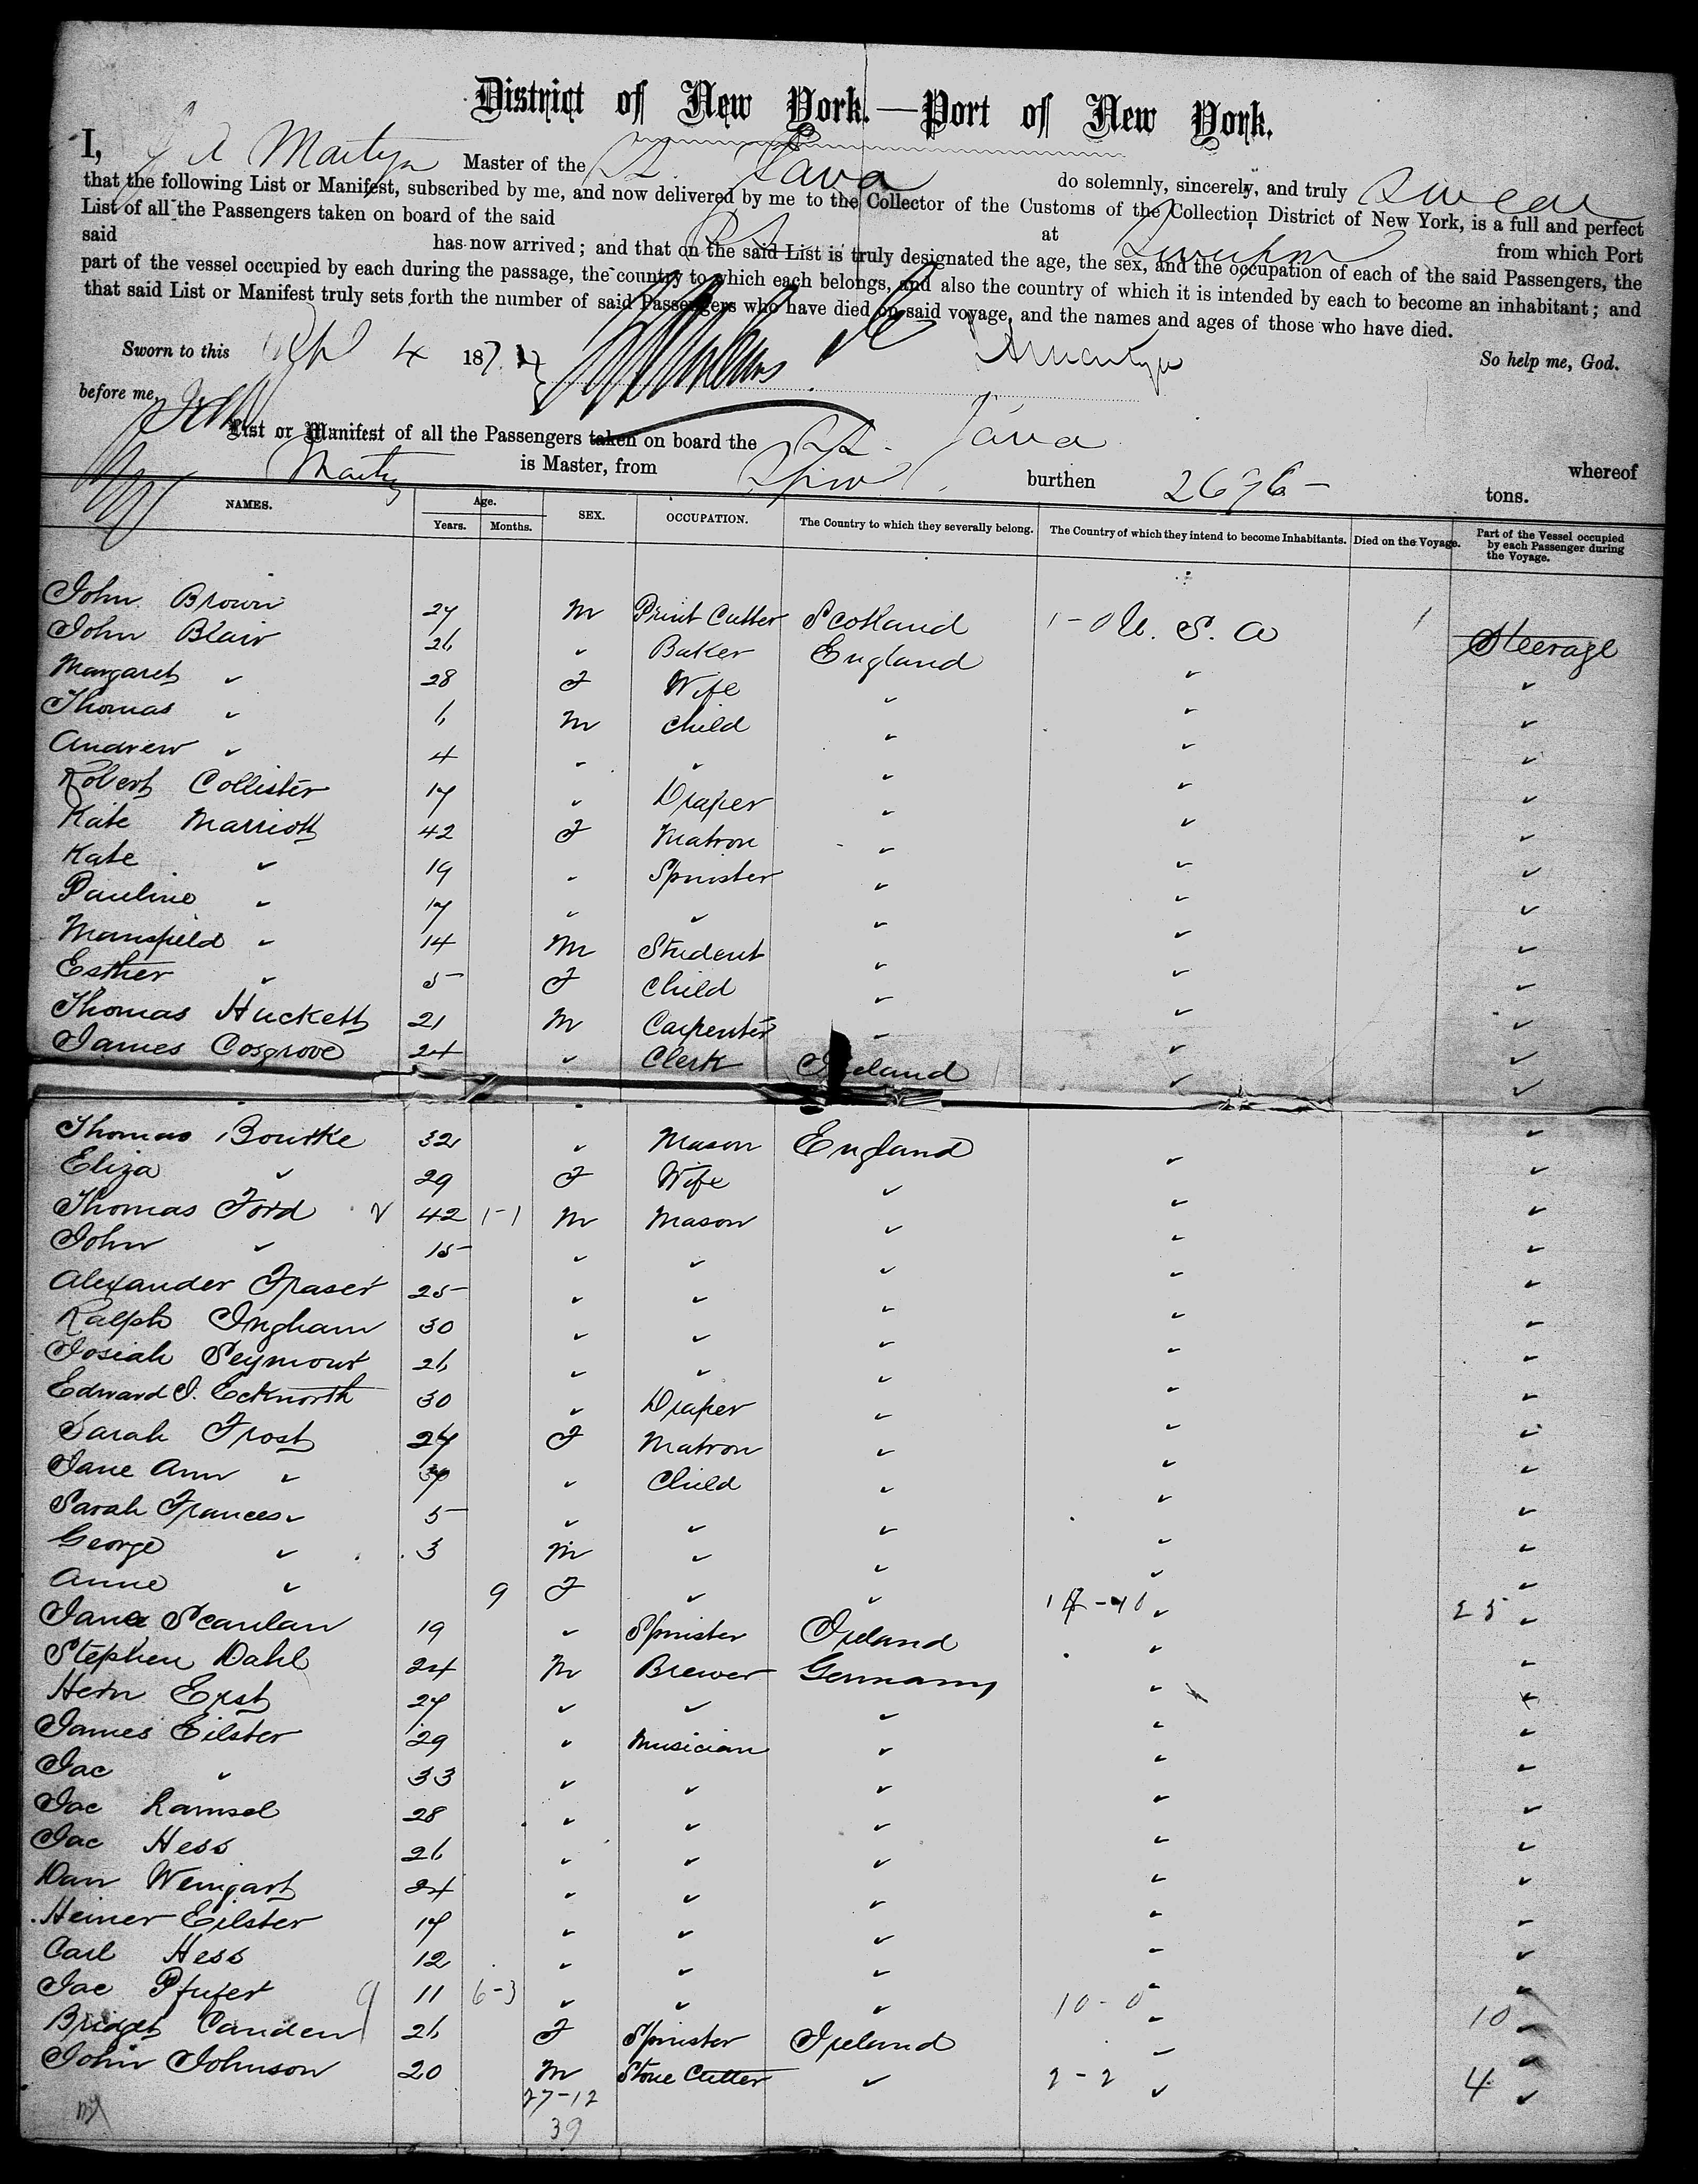 District of New York.—Port of New York.
I, J A Martyn Master of the SS. Java do solemnly, sincerely, and truly swear
that the following List or Manifest, subscribed by me, and now delivered by me to the Collector of the Customs of the Collection District of New York, is a full and perfect
List of all the Passengers taken on board of the said SS at Liverpool from which Port
said has now arrived; and that on the said List is truly designated the age, the sex, and the occupation of each of the said Passengers, the
part of the vessel occupied by each during the passage, the country to which each belongs, and also the country of which it is intended by each to become an inhabitant; and
that said List or Manifest truly sets forth the number of said Passengers who have died on said voyage, and the names and ages of those who have died.
Sworn to this 4 187 So help me, God.
before me,
List or Manifest of all the Passengers taken on board the SS. Java whereof
Martyn is Master, from burthen 2696 tons.
NAMES. Age. Years. Months. SEX. OCCUPATION. The Country to which they severally belong. The Country of which they intend to become Inhabitants. Died on the Voyage. Part of the Vessel occupied by each Passenger during the Voyage.
John Brown 27 M Print Cutter Scotland 1-0 U. S. A 1 Steerage
John Blair 26 " Baker England " "
Margaret " 28 F Wife " " "
Thomas " 6 M Child " " "
Andrew " 4 " " " " "
Robert Collister 17 " Draper " " "
Kate Marriott 42 F Matron " " "
Kate " 19 " Spinster " " "
Pauline " 17 " " " " "
Mansfield " 14 M Student " " "
Esther " 5 F Child " " "
Thomas Huckett 21 M Carpenter " " "
James Cosgrove 24 " Clerk Ireland " "
Thomas Bourke 32 " Mason England " "
Eliza " 29 F Wife " " "
Thomas Ford 42 1-1 M Mason " " "
John " 15 " " " " "
Alexander Fraser 25 " " " " "
Ralph Ingham 30 " " " " "
Josiah Seymour 26 " " " " "
Edward J. Ecknorth 30 " Draper " " "
Sarah Frost 27 F Matron " " "
Jane Ann " " Child " " "
Sarah Frances " 5 " " " " "
George " 3 M " " " "
Anne " 9 F " " " "
Jane Scanlan 19 " Spinster Ireland " 25 "
Stephen Dahl 24 M Brewer Germany " "
Hern Erst 27 " " " " "
James Eilster 29 " Musician " " "
Jac " 33 " " " " "
Jac Ramsel 28 " " " " "
Jac Hess 26 " " " " "
Dan Weingart 24 " " " " "
Heiner Eilster 17 " " " " "
Carl Hess 12 " " " " "
Jac Pfufer 11 6-3 " " " " "
Bridget Canden 26 F Spinster Ireland 10-0 " 10 "
John Johnson 20 M Stone Cutter " 2-2 " 4 "
27-12
39